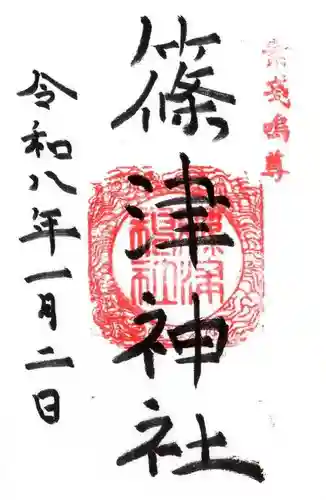 素戔嗚尊
篠津神社
篠津神社
令和八年一月二日